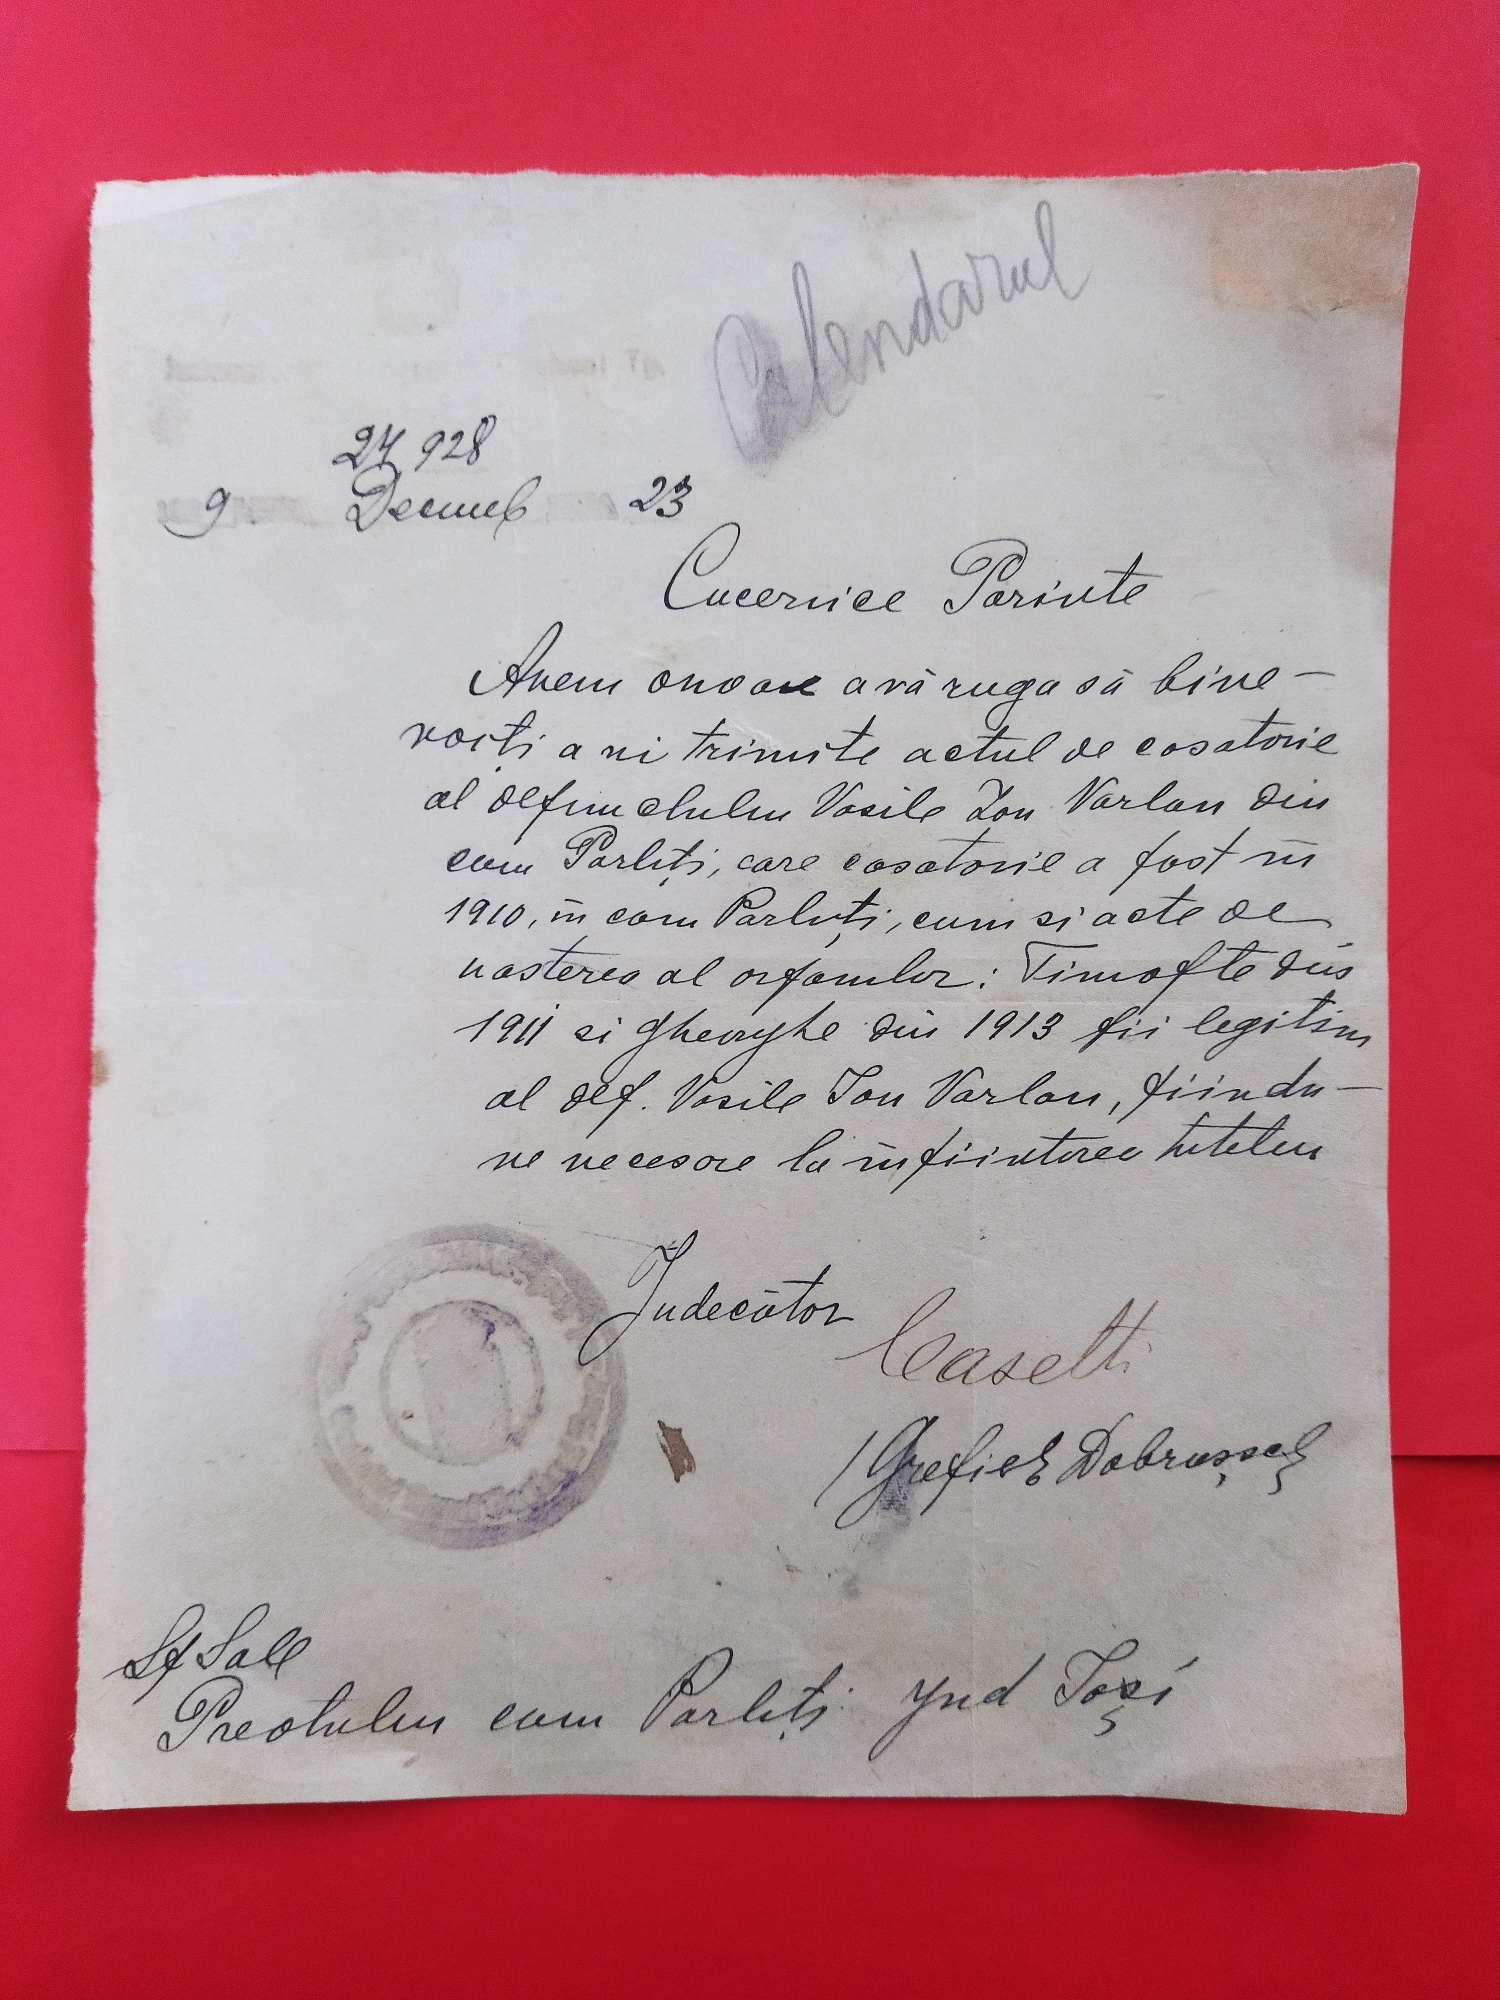 Calendarul
27 928
9 Decemb 23
Cucernice Parinte
Avem onoare a vă ruga să bine-
voiţi a ni trimite actul de casatorie
al defunctului Vasile Ion Varlan din
com Parliţi, care casatorie a fost în
1910, în com Parliţi, cum si acte de
nasterea al orfanilor: Timofte din
1911 si Gheorghe din 1913 fii legitim
al def. Vasile Ion Varlan, fiindu-
ne necesare la înfiintarea tutelei
Judecător
Caselli
/Grefier
Sf Sale
Preotului com Parliţi Jud Iaşi